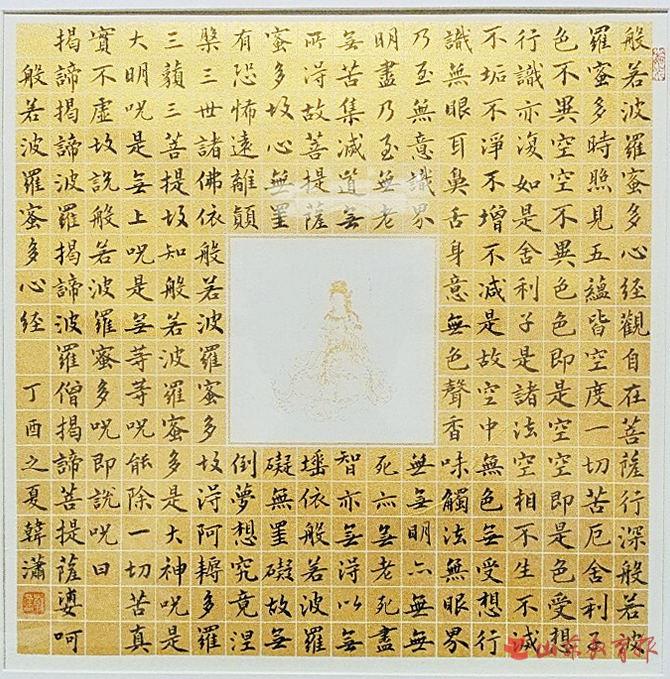 般若波羅蜜多心經觀自在菩薩行深般若波
羅蜜多時照見五蘊皆空度一切苦厄舍利子
色不異空空不異色色即是空空即是色受想
行識亦復如是舍利子是諸法空相不生不滅
不垢不淨不增不減是故空中無色無受想行
識無眼耳鼻舌身意無色聲香味觸法無眼界
乃至無意識界無無明亦無無
明盡乃至無老死亦無老死盡
無苦集滅道無智亦無得以無
所得故菩提薩埵依般若波羅
蜜多故心無罣礙無罣礙故無
有恐怖遠離顛倒夢想究竟涅
槃三世諸佛依般若波羅蜜多故得阿耨多羅
三藐三菩提故知般若波羅蜜多是大神咒是
大明咒是無上咒是無等等咒能除一切苦真
實不虛故說般若波羅蜜多咒即說咒曰
揭諦揭諦波羅揭諦波羅僧揭諦菩提薩婆呵
般若波羅蜜多心經 丁酉之夏韓瀟
山东教育报